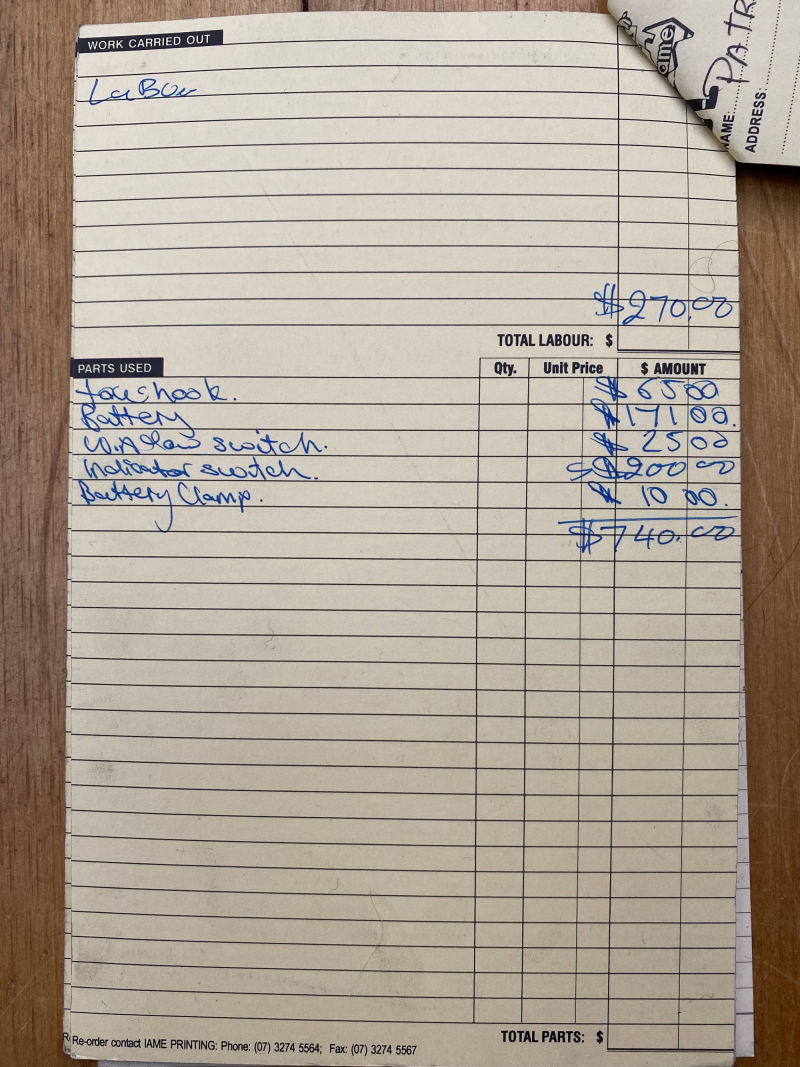 WORK CARRIED OUT
ame
PATR
NAME:
ADDRESS:
LaBou
$270.00
TOTAL LABOUR: $
PARTS USED Qty. Unit Price $ AMOUNT
hook. $ 65 00
Battery $ 171 00.
switch. $ 25 00
Indicator switch. $200 00
Battery Clamp. $ 10 00.
$740.00
TOTAL PARTS: $
Re-order contact IAME PRINTING: Phone: (07) 3274 5564; Fax: (07) 3274 5567